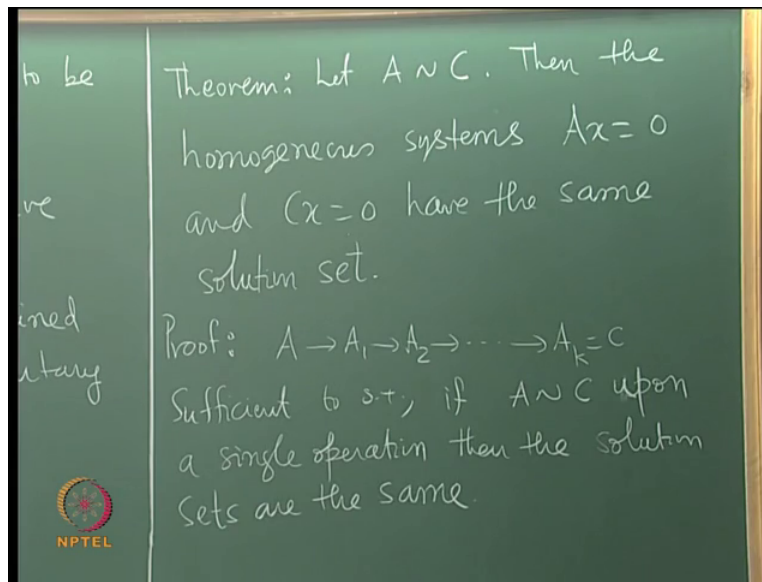 to be
ve
ined
utary
Theorem: Let A ~ C. Then the
homogeneous systems Ax = 0
and Cx = 0 have the same
solution set.
Proof: A → A₁ → A₂ → ⋯ → Aₖ = C
Sufficient to s.t., if A ~ C upon
a single operation then the solution
sets are the same.
NPTEL